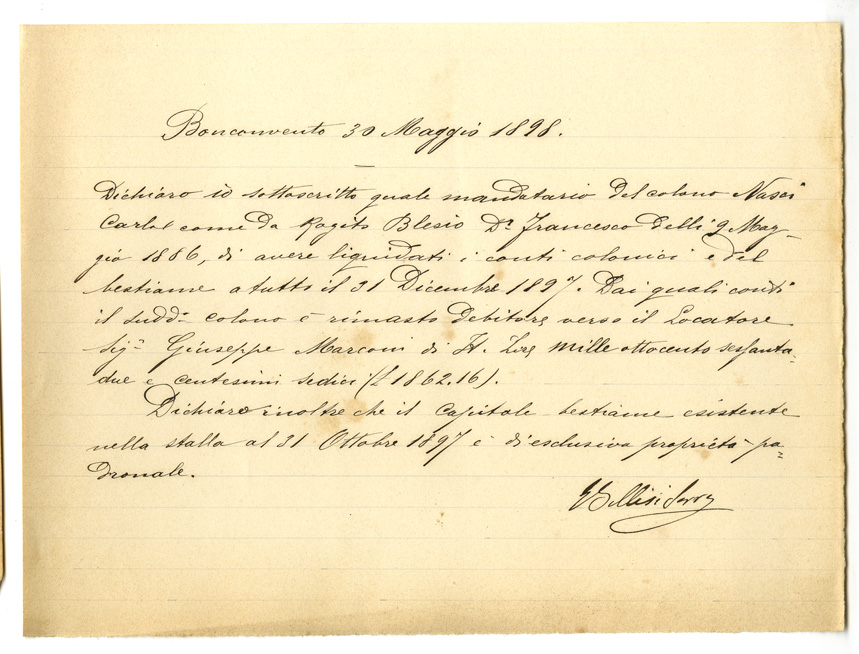 Bonconvento 30 Maggio 1898.
Dichiaro io sottoscritto quale mandatario del colono Nasci
Carlo come da Rogito Blesio Dr. Francesco delli 9 Mag-
gio 1886, di avere liquidati i conti colonici e del
bestiame a tutto il 31 Dicembre 1897. Dai quali conti
il sudd.o colono è rimasto debitore verso il Locatore
Sig.r Giuseppe Marconi di It. Lire mille ottocento sessanta-
due e centesimi sedici (£ 1862.16).
Dichiaro inoltre che il capitale bestiame esistente
nella stalla al 31 Ottobre 1897 è di esclusiva proprietà pa=
dronale.